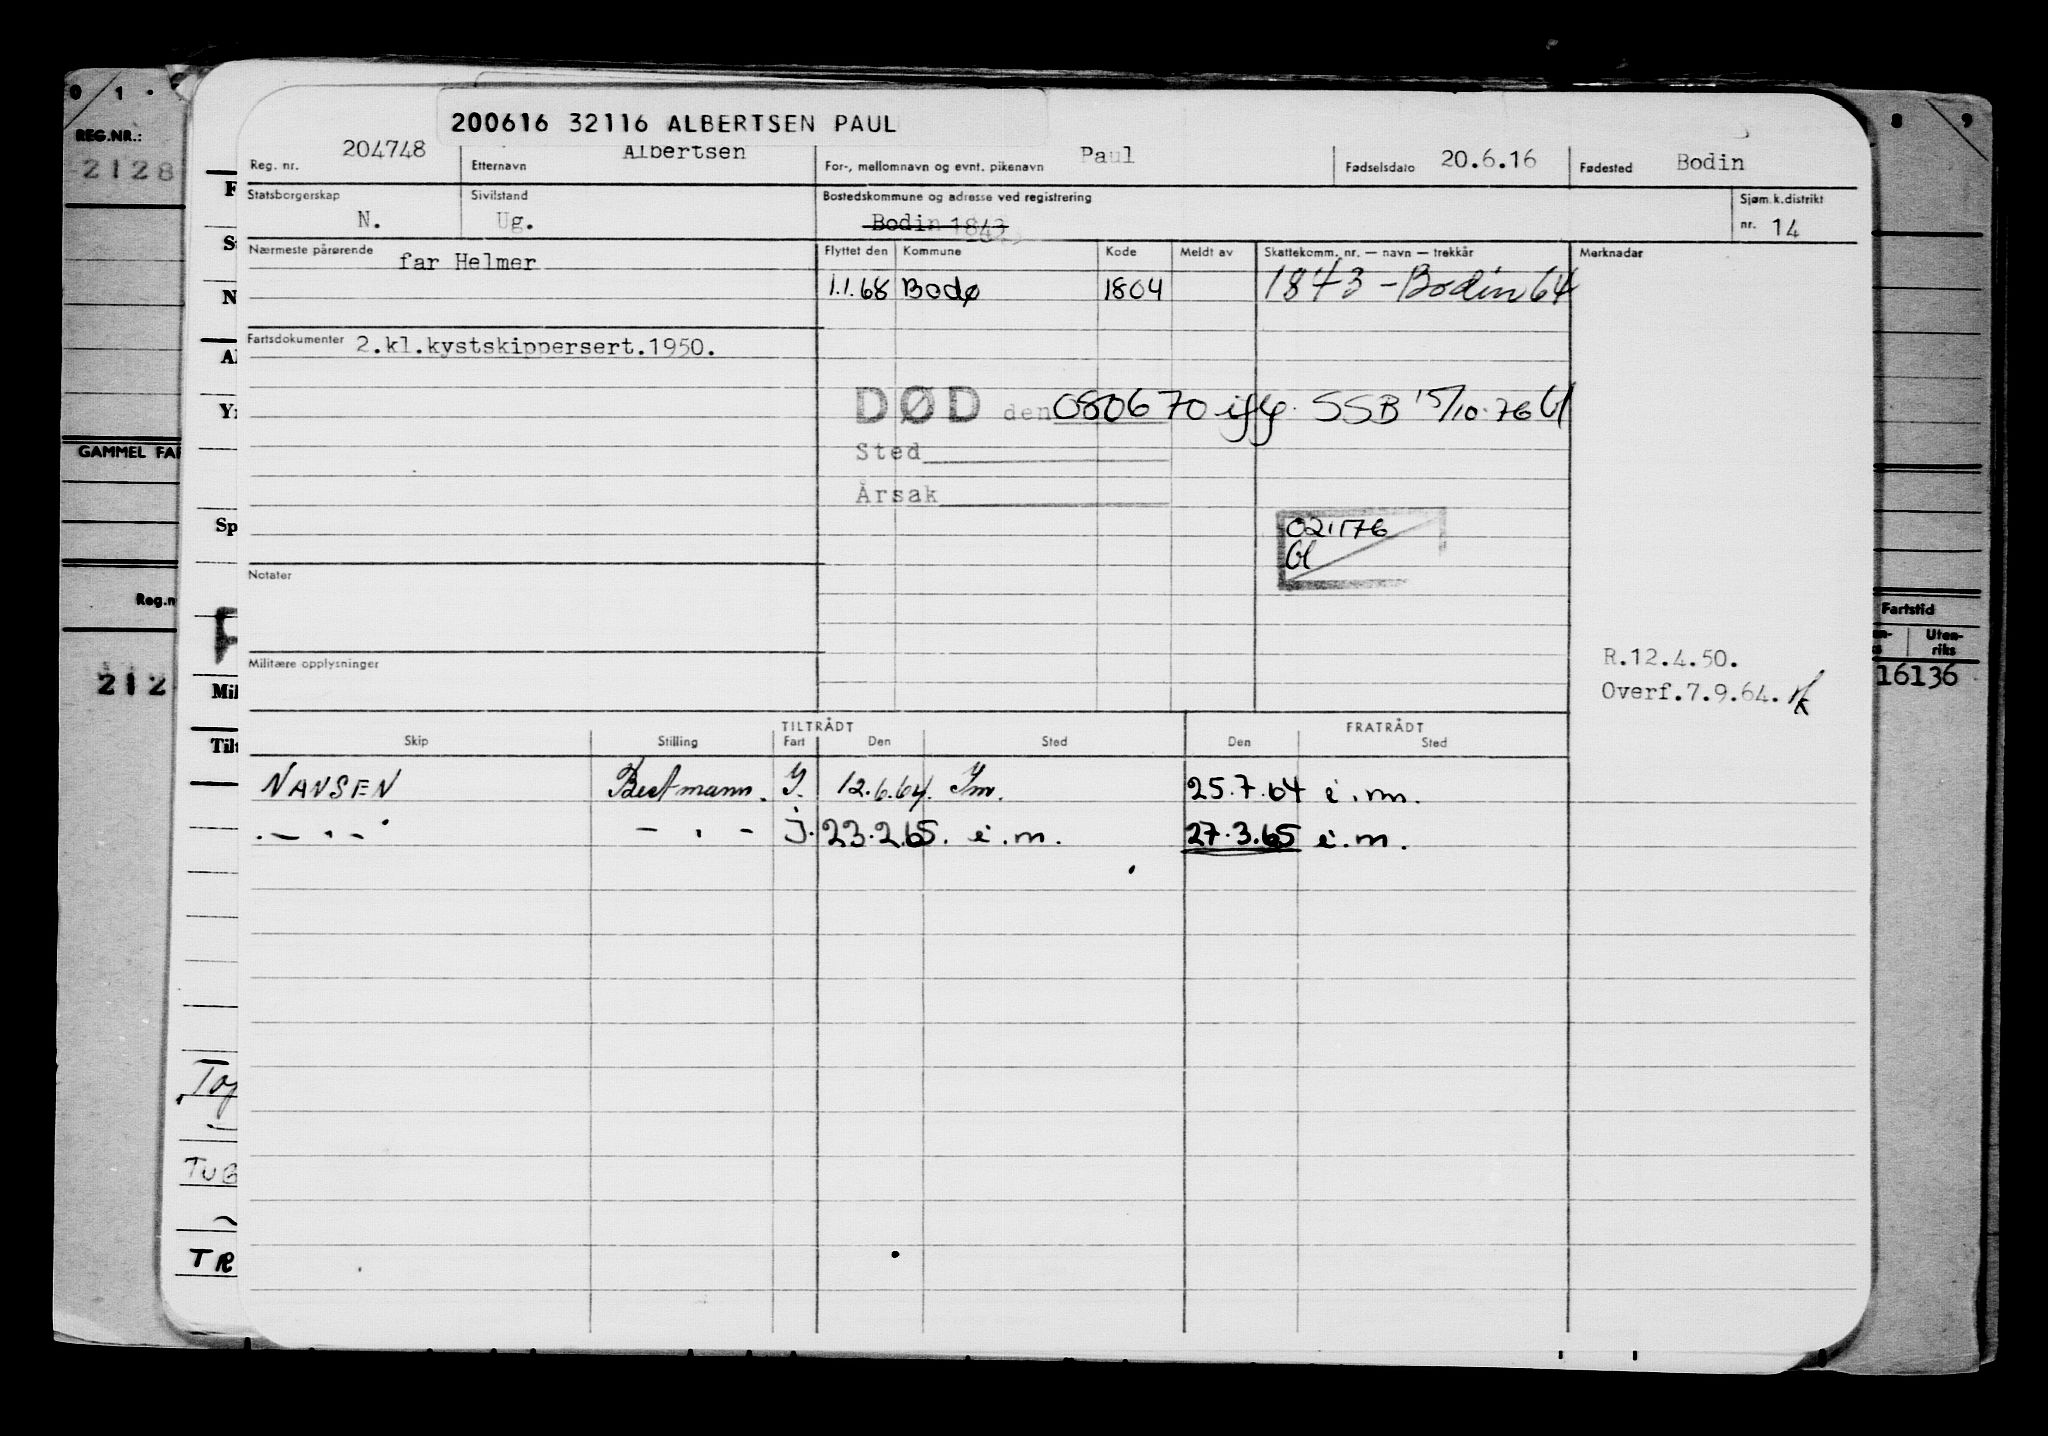 200616 32116 ALBERTSEN PAUL
Reg. nr. 204748 Etternavn Albertsen For-, mellomnavn og evnt. pikenavn Paul Fødselsdato 20.6.16 Fødested Bodin
Statsborgerskap N. Sivilstand Ug. Bostedskommune og adresse ved registrering Bodin 1843 Sjøm.k.distrikt nr. 14
Nærmeste pårørende far Helmer Flyttet den Kommune Kode Meldt av Skattekomm. nr. — navn — trekkår Merknadar
1.1.68 Bodø 1804 1843 - Bodin 64
Fartsdokumenter 2.kl.kystskippersert.1950.
DØD den 080670 iflg. SSB 15/10-76
Sted
Årsak
021176
Notater
Militære opplysninger
R.12.4.50.
Overf.7.9.64.
TILTRÅDT FRATRÅDT
Skip Stilling Fart Den Sted Den Sted
NANSEN Bestmann. J. 12.6.64. Im. 25.7.64 i.m.
- " - - " - j. 23.2.65. i.m. 27.3.65 i.m.
0 1
REG.NR.:
2128
GAMMEL FA
Reg.n
212
F
S
N
Al
Y
Sp
Mil
Tilt
TUB
TR
8 9
Fartstid
Uten-
riks
16136